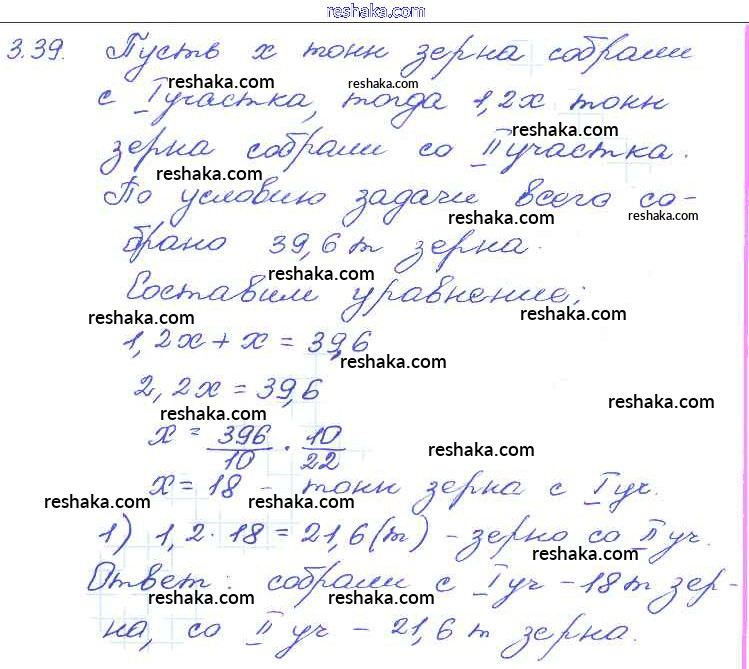 reshaka.com
3.39. Пусть x тонн зерна собрали
reshaka.com reshaka.com
с I участка, тогда 1,2x тонн
reshaka.com
зерна собрали со II участка.
reshaka.com
По условию задачи всего со-
reshaka.com reshaka.com
брано 39,6 т зерна.
reshaka.com
Составим уравнение:
reshaka.com reshaka.com
1,2x + x = 39,6
reshaka.com
2,2x = 39,6
reshaka.com reshaka.com
x = 396/10 · 10/22
reshaka.com
x = 18 - тонн зерна с I уч.
reshaka.com reshaka.com
1) 1,2 · 18 = 21,6 (т) - зерно со II уч.
reshaka.com
Ответ: собрали с I уч - 18 т зер-
reshaka.com reshaka.com
на, со II уч - 21,6 т зерна.